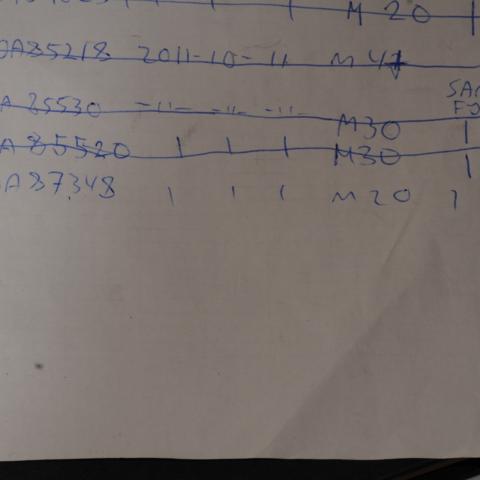 M 20 |
0A85218 2011-10-11 M 47
SAM
A 85530 -"- -"- -"- M30 |
A 85520 | | | M30 |
A87348 | | | M 20 |